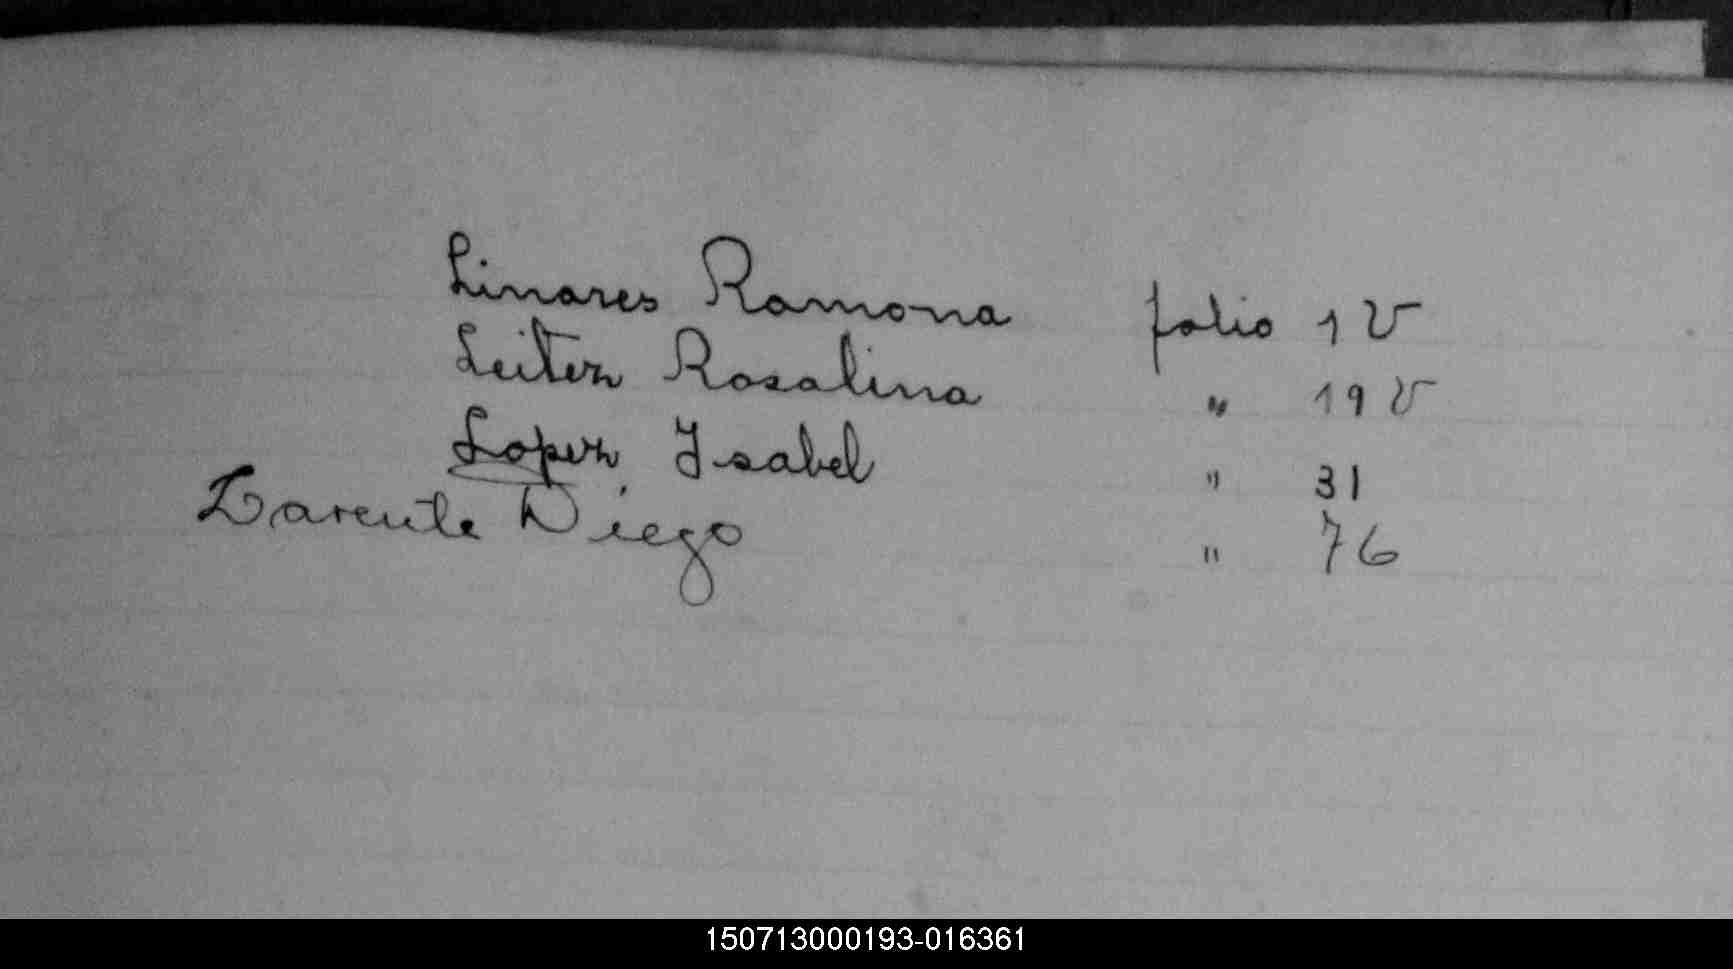 Linares Ramona folio 1 V
Leiten Rosalina " 19 V
Lopez, Isabel " 31
Diego " 76
150713000193-016361